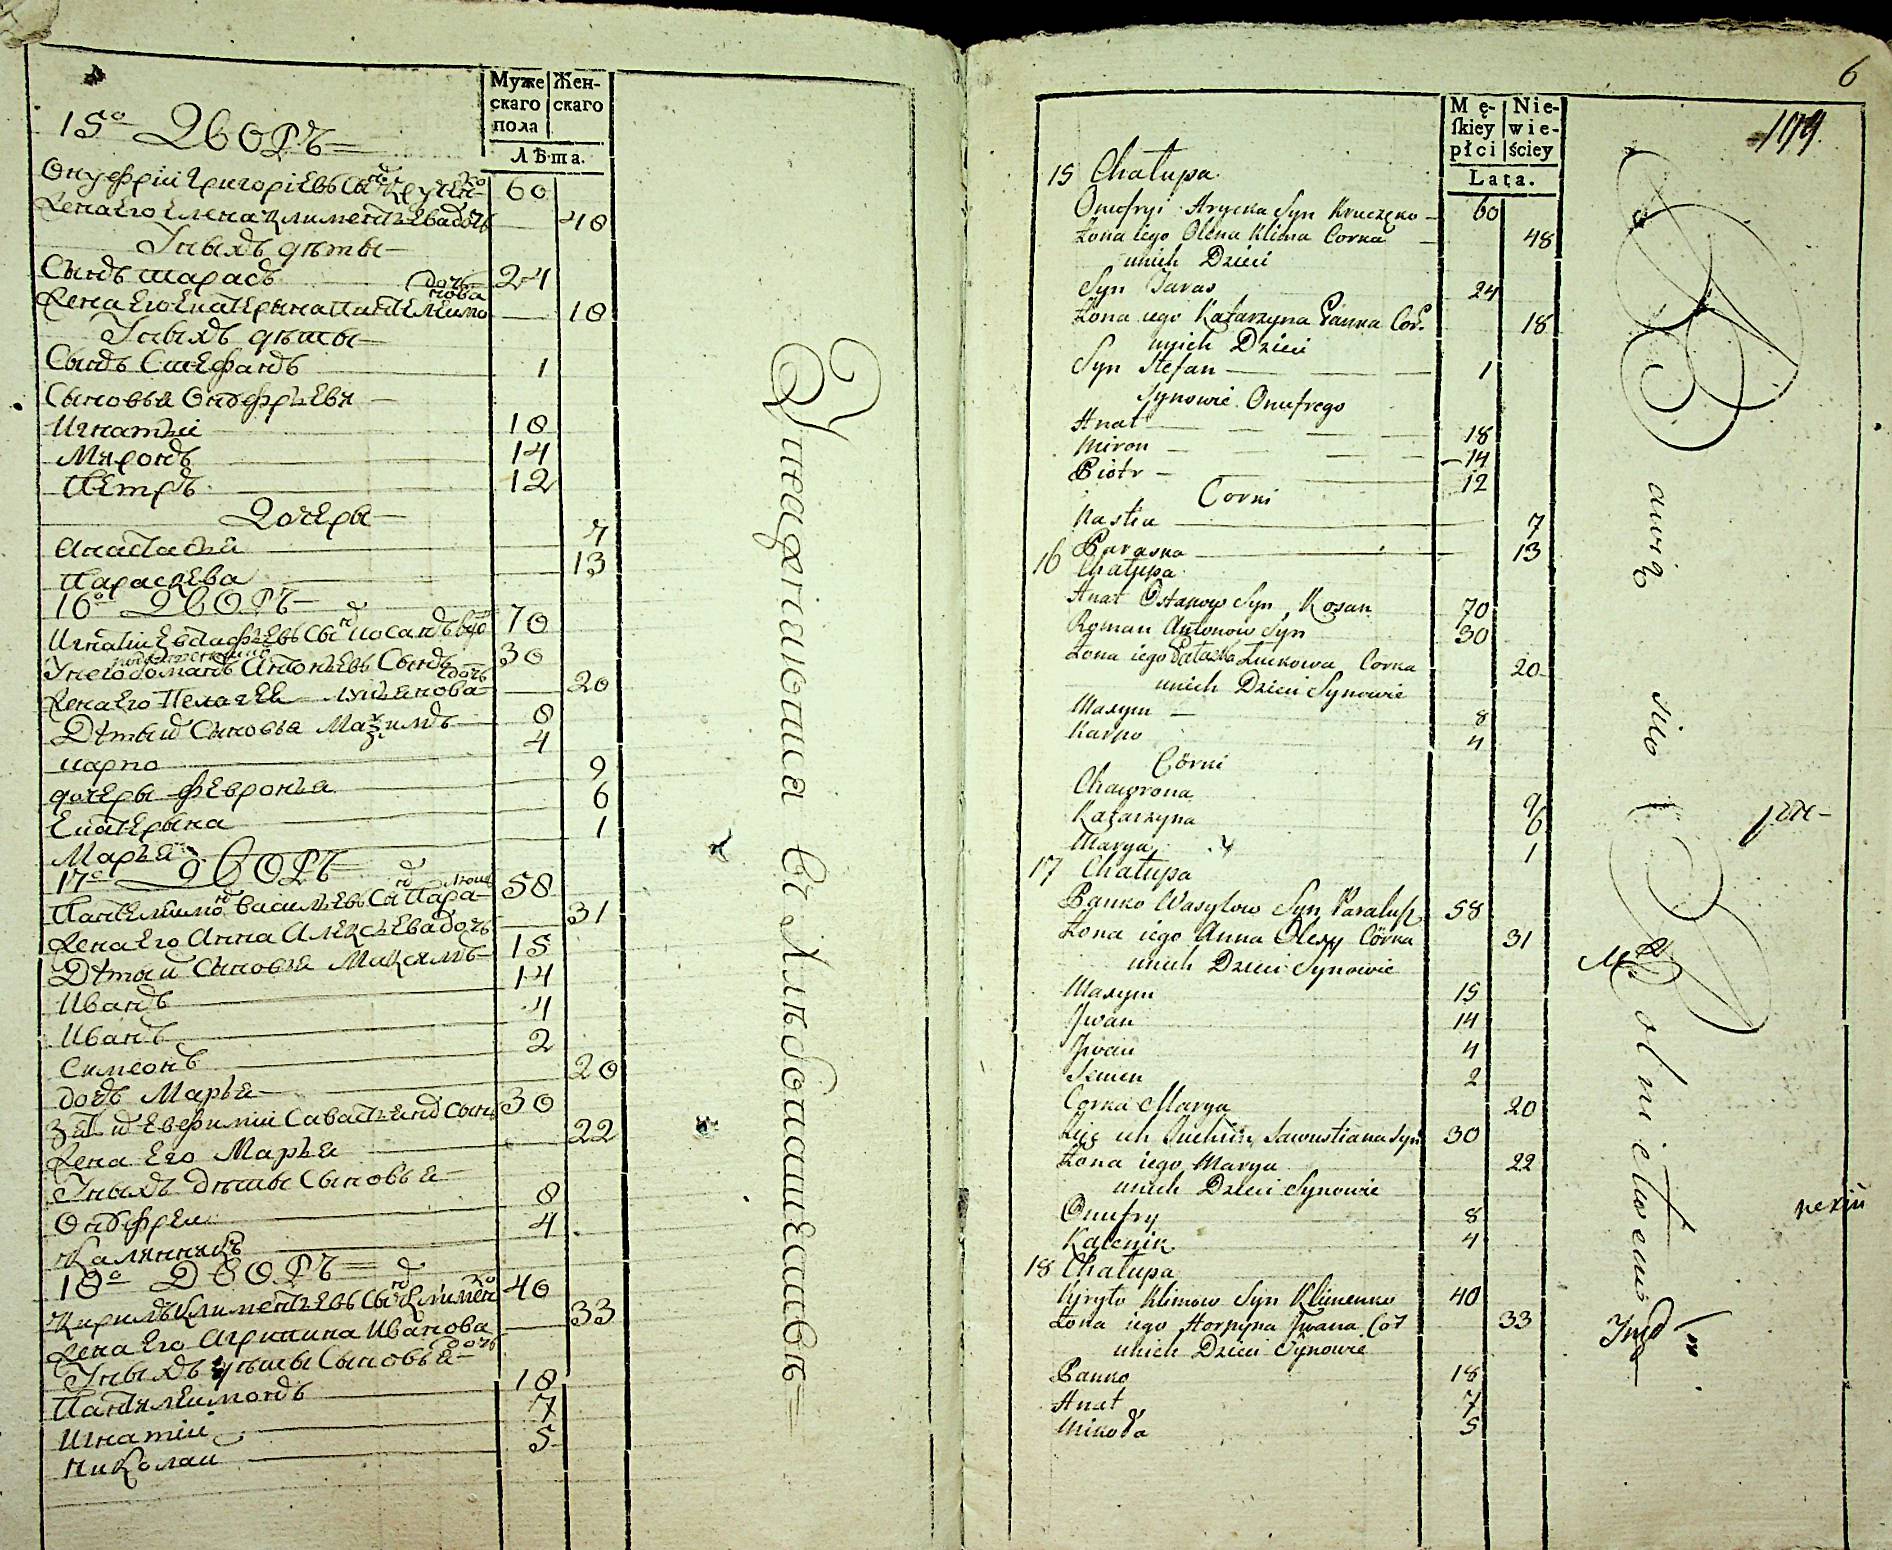 Муже
скаго
пола
Жен-
скаго
Лѣта.
15º Дворъ
Онуфрій Григоріевъ Сынъ 60
Жена Его Елена Климентьева дочь 48
У ныхъ дѣты
Сынъ Тарасъ 24
Жена Его Екатерына Пантелимо
нова дочь 18
У ныхъ дѣты
Сынъ Стефанъ 1
Сыновья Онуфрьевы
Игнатъй 18
Миронъ 14
Петръ 12
Дочеры
Анастасья 7
Параскева 13
16º Дворъ
Игнатій Евстафьевъ Сынъ Косанъ 70
У него Романъ Антоньевъ Сынъ 30
Жена Его Пелагея Лукьянова дочь 20
Дѣты и Сыновья Максимъ 8
Карпо 4
Дочеры Февронья 9
Екатерына 6
Марья 1
17º Дворъ
Пантелимонъ Васильевъ Сынъ Пара- 58
Жена Его Анна Алексѣева дочь 31
Дѣты и Сыновья Максимъ 15
Иванъ 14
Иванъ 4
Симеонъ 2
дочь Марья 20
Зять Евфимій Савастьяновъ Сынъ 30
Жена Его Марья 22
У ныхъ дѣты Сыновья
Онуфрей 8
Каленникъ 4
18º Дворъ
Кирилъ Климентьевъ Сынъ Клименко 40
Жена Его Агрипина Иванова дочь 33
У ныхъ дѣты Сыновья
Пантелимонъ 18
Игнатій 7
Николай 5
въ
6
199
Mę-
ſkiey
płci
Nie-
wie-
ściey
Lata.
15 Chałupa
Onufryi Hrycka Syn Kruczko 60
Żona iego Olena Klima Corka 48
u nich Dzieci
Syn Taras 24
Żona iego Katarzyna Panka Cor. 18
u nich Dzieci
Syn Stefan 1
Synowie Onufrego
Hnat 18
Miron 14
Piotr 12
Corni
Nastia 7
Paraska 13
16 Chałupa
Hnat Ostapow Syn Kosan 70
Roman Antonow Syn 30
Żona iego Łuckowa Corka 20
u nich Dzieci Synowie
Maxym 8
Karpo 4
Córni
Chawrona 9
Katarzyna 6
Marya 1
17 Chałupa
Panko Wasylow Syn Paraluch 58
Żona iego Anna Olexy Córka 31
u nich Dzieci Synowie
Maxym 15
Jwan 14
Jwan 4
Semen 2
Corka Marya 20
Zięć ich Juchim Sawustiana Syn 30
Żona iego Marya 22
u nich Dzieci Synowie
Onufry 8
Kalenik 4
18 Chałupa
Kyryło Klimow Syn Klimenko 40
Żona iego Horpyna Jwana Cor 33
u nich Dzieci Synowie
Panko 18
Hnat 7
Mikoła 5